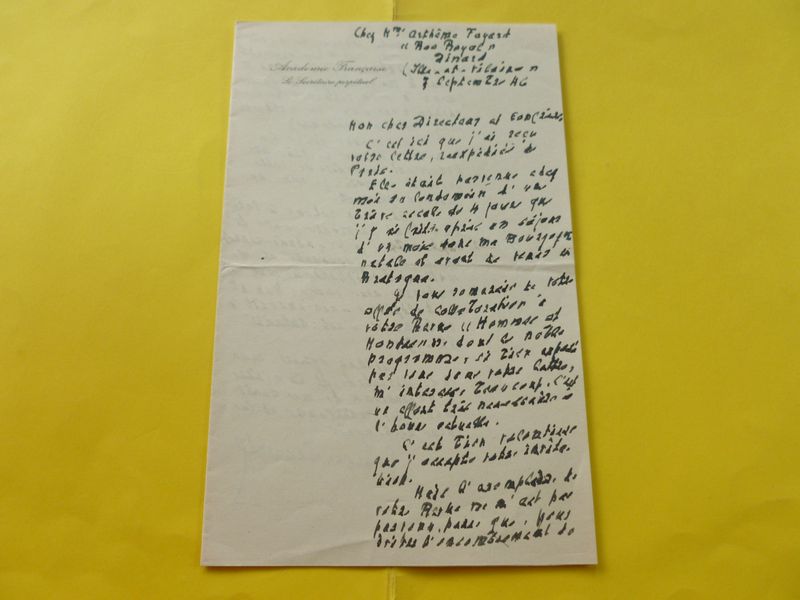 Chez Mme Arthème Fayard
"Roo Royal"
Dinard
(Ille-et-Vilaine)
7 Septembre 46
Académie Française
Le Secrétaire perpétuel
Mon cher Directeur et Confrère,
C'est ici que j'ai reçu
votre lettre, réexpédiée de
Paris.
Elle était parvenue chez
moi au lendemain d'une
brève escale de 4 jours que
j'y ai faite après un séjour
d'un mois dans ma Bourgogne
natale et avant de venir en
Bretagne.
Je vous remercie de votre
offre de collaboration à
votre Revue "Hommes et
Mondes", dont le noble
programme, si bien exposé
par vous dans votre lettre,
m'intéresse beaucoup. C'est
un effort très nécessaire à
l'heure actuelle.
C'est bien volontiers
que j'accepte votre invita-
tion.
Mais l'exemplaire de
votre Revue ne m'est pas
parvenu, parce que, nous
d'encombrement de